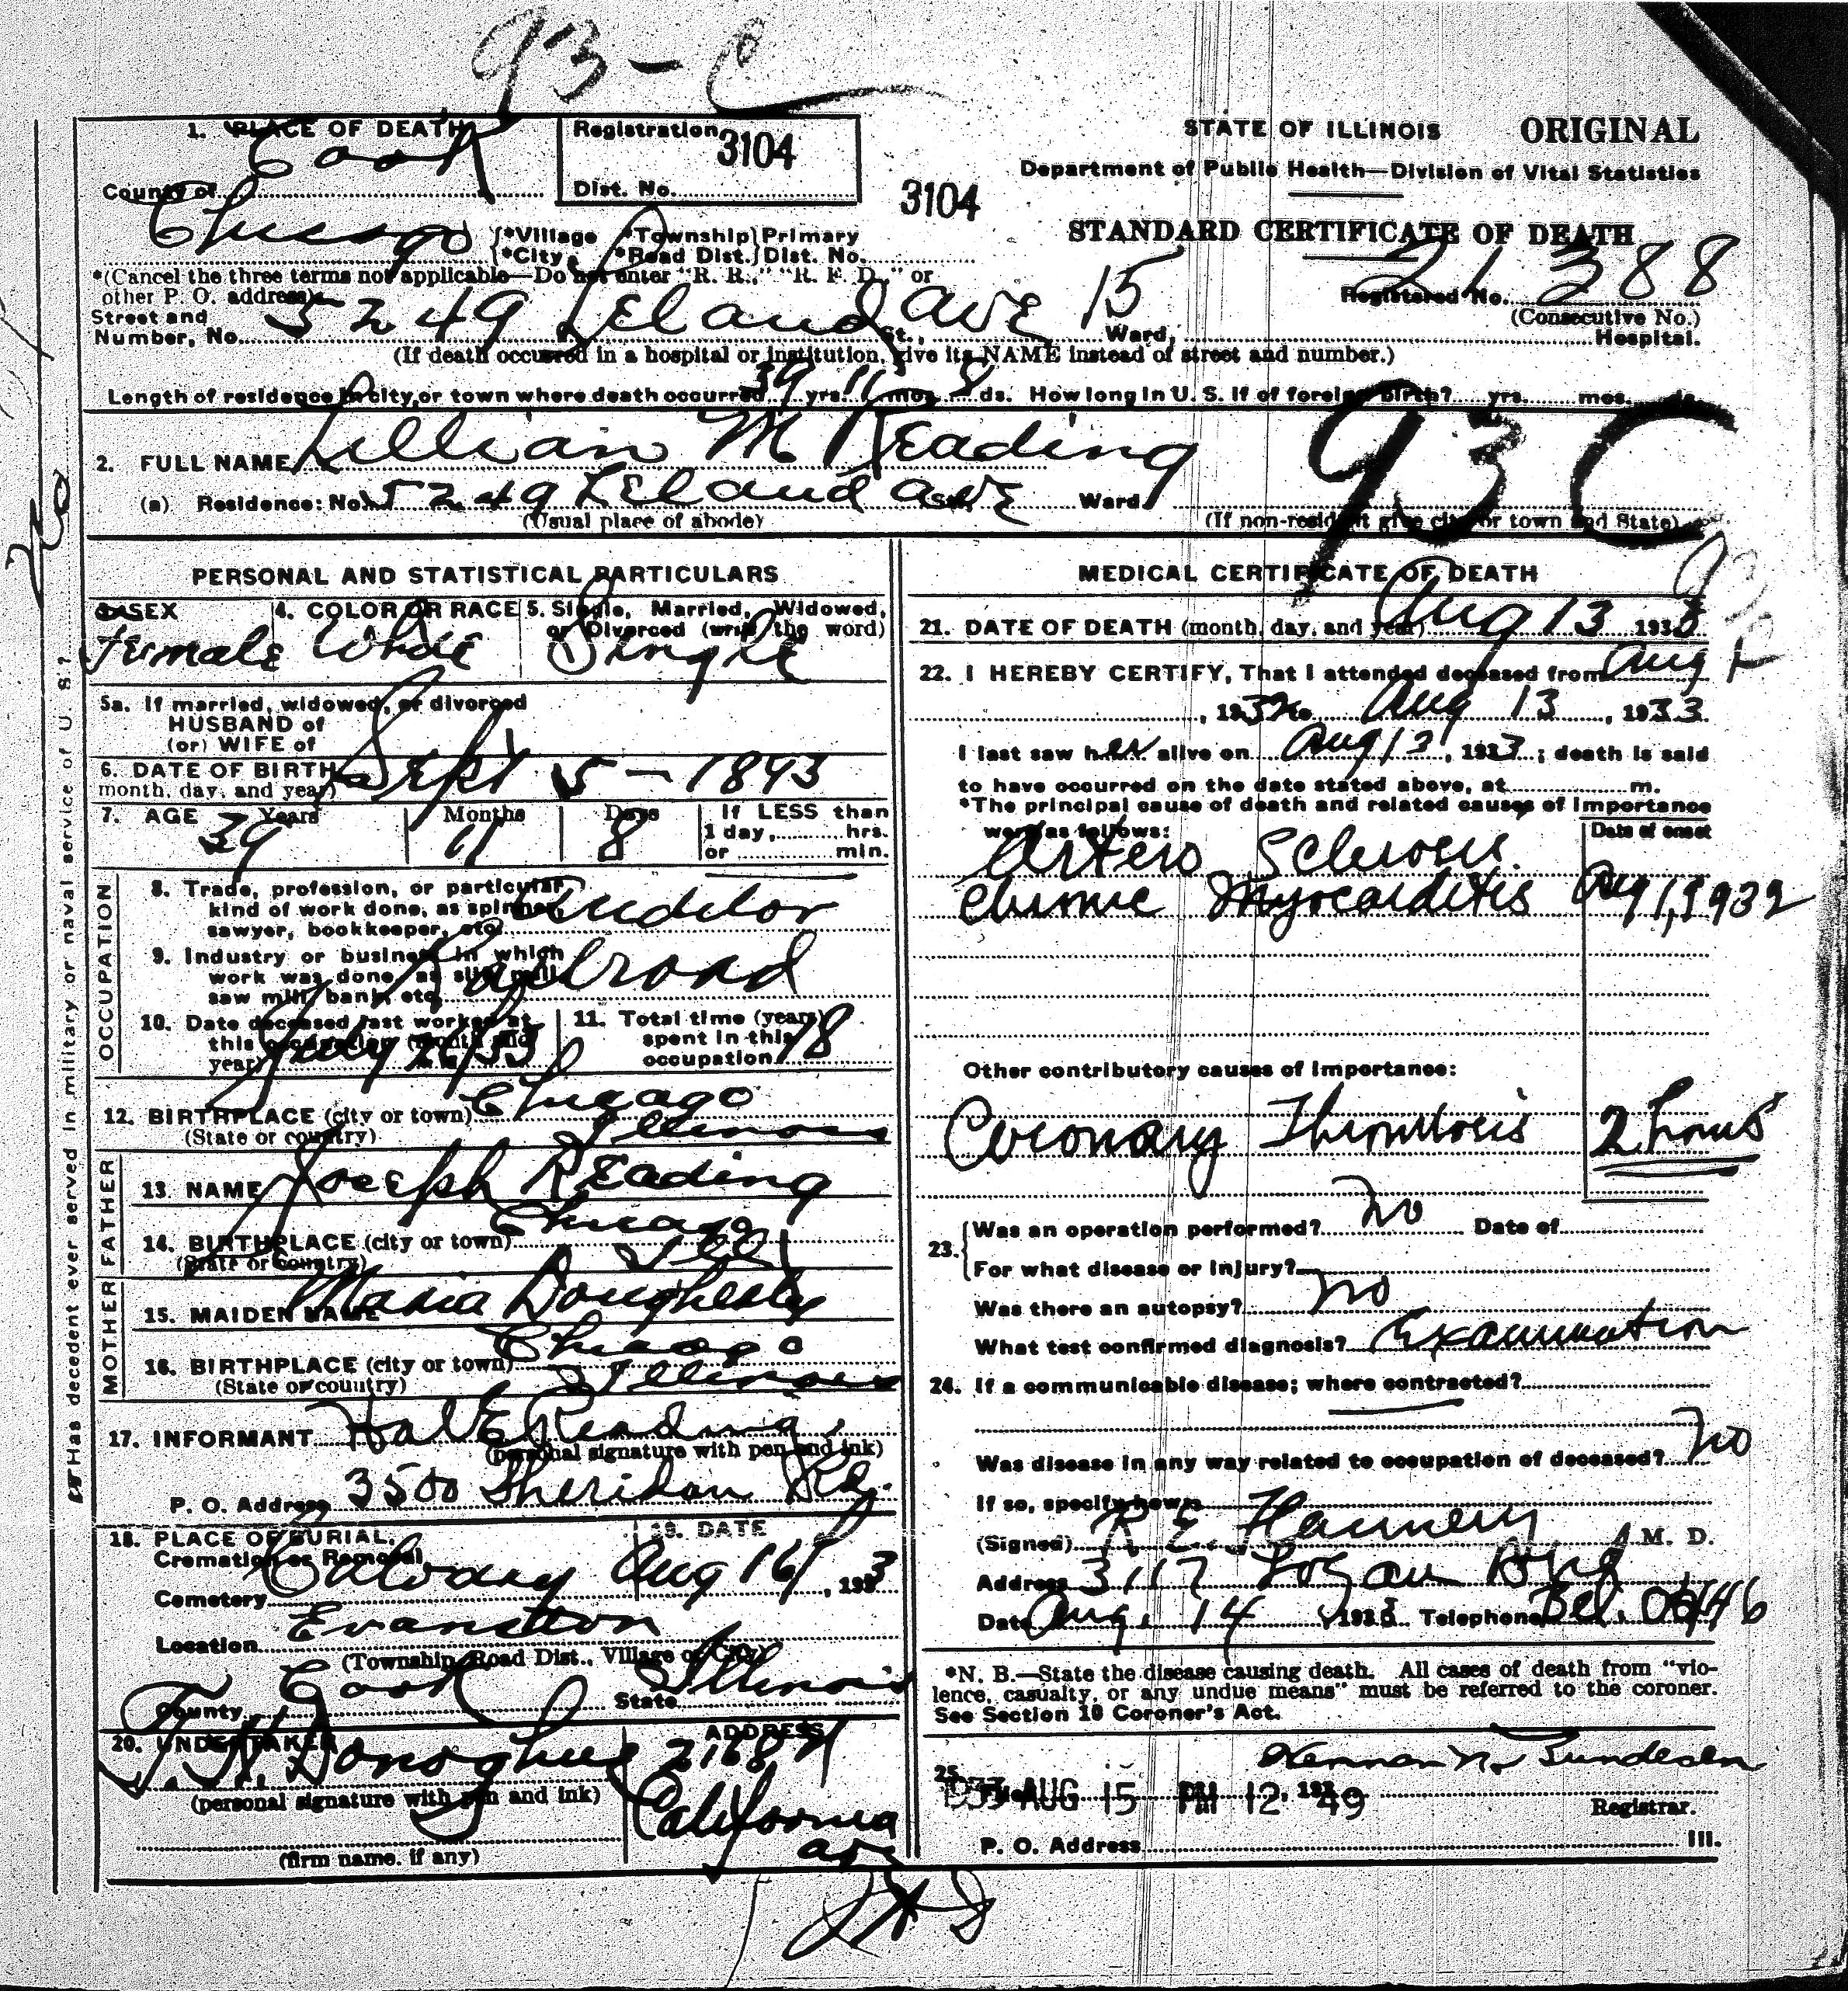 93-C
1. PLACE OF DEATH
Registration 3104
Dist. No.
STATE OF ILLINOIS ORIGINAL
Department of Public Health—Division of Vital Statistics
County of Cook
3104
STANDARD CERTIFICATE OF DEATH
Chicago {*Village *Township} Primary
*City *Road Dist.} Dist. No.
*(Cancel the three terms not applicable—Do not enter "R. R.," "R. F. D.," or
other P. O. address)
Registered No. 21388
(Consecutive No.)
Street and
Number, No. 5249 Leland Ave St., 15 Ward, Hospital.
(If death occurred in a hospital or institution, give its NAME instead of street and number.)
Length of residence in city or town where death occurred 39 yrs. 11 mos. 8 ds. How long in U. S. if of foreign birth? yrs. mos. ds.
2. FULL NAME Lillian M Reading
93C
(a) Residence: No. 5249 Leland Ave St. Ward
(Usual place of abode) (If non-resident give city or town and State)
Has decedent ever served in military or naval service of U. S.? no
PERSONAL AND STATISTICAL PARTICULARS
3. SEX 4. COLOR OR RACE 5. Single, Married, Widowed,
or Divorced (write the word)
Female White Single
5a. If married, widowed, or divorced
HUSBAND of
(or) WIFE of
6. DATE OF BIRTH
month, day, and year) Sept 5-1893
7. AGE Years Months Days If LESS than
39 11 8 1 day, hrs.
or min.
OCCUPATION
8. Trade, profession, or particular
kind of work done, as spinner,
sawyer, bookkeeper, etc. Auditor
9. Industry or business in which
work was done, as silk mill,
saw mill, bank, etc. Railroad
10. Date deceased last worked at
this occupation (month and
year) July 26/33
11. Total time (years)
spent in this
occupation 18
12. BIRTHPLACE (city or town) Chicago
(State or country) Illinois
FATHER
13. NAME Joseph Reading
14. BIRTHPLACE (city or town) Chicago
(State or country) Ill
MOTHER
15. MAIDEN NAME Maria Dougherty
16. BIRTHPLACE (city or town) Chicago
(State or country) Illinois
17. INFORMANT Hal E Reading
(personal signature with pen and ink)
P. O. Address 3500 Sheridan Rd.
18. PLACE OF BURIAL, 19. DATE
Cremation or Removal
Cemetery Calvary Aug 16, 1933
Location Evanston
(Township, Road Dist., Village or City)
County Cook State Illinois
20. UNDERTAKER ADDRESS
J. H. Donoghue 2168 N
(personal signature with pen and ink) California
ave
(firm name, if any)
MEDICAL CERTIFICATE OF DEATH
21. DATE OF DEATH (month, day, and year) Aug 13 1933
22. I HEREBY CERTIFY, That I attended deceased from Aug 1
, 1932 to Aug 13, 1933
I last saw her alive on Aug 13, 1933; death is said
to have occurred on the date stated above, at m.
*The principal cause of death and related causes of importance
were as follows: Date of onset
Artero Sclerosis.
Chronic Myocarditis Aug 1, 1932
Other contributory causes of importance:
Coronary Thrombosis 2 hours
23. {Was an operation performed? no Date of
For what disease or injury?
Was there an autopsy? no
What test confirmed diagnosis? Examination
24. If a communicable disease; where contracted?
Was disease in any way related to occupation of deceased? no
If so, specify how
(Signed) R E Flannery M. D.
Address 3117 Logan Blvd
Date Aug. 14, 1933 Telephone Bel.
*N. B.—State the disease causing death. All cases of death from "vio-
lence, casualty, or any undue means" must be referred to the coroner.
See Section 10 Coroner's Act.
Herman N. Bundesen
25. 1933 AUG 15 PM 12 49
Registrar.
P. O. Address Ill.